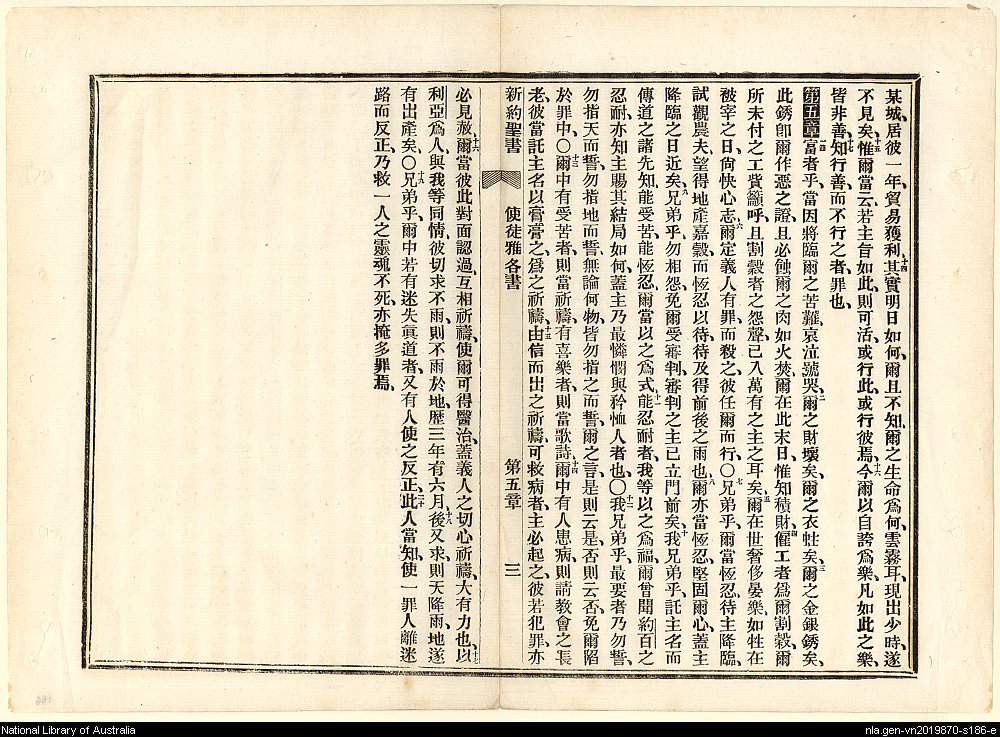 某城、居彼一年、貿易獲利、十四其實明日如何、爾且不知、爾之生命爲何、雲霧耳、現出少時、遂
不見矣、十五惟爾當云、若主旨如此、則可活、或行此、或行彼焉、十六今爾以自誇爲樂、凡如此之樂、
皆非善、十七知行善、而不行之者、罪也、
第五章一富者乎、當因將臨爾之苦難、哀泣號哭、二爾之財壞矣、爾之衣蛀矣、三爾之金銀銹矣、
此銹卽爾作惡之證、且必蝕爾之肉如火焚、爾在此末日、惟知積財、四傭工者爲爾割穀、爾
所未付之工貲籲呼、且割穀者之怨聲、已入萬有之主之耳矣、五爾在世奢侈晏樂、如牲在
被宰之日、尙快心志、六爾定義人有罪、而殺之、彼任爾而行〇七兄弟乎、爾當恆忍、待主降臨、
試觀農夫望得地產嘉穀、而恆忍以待、待及得前後之雨也、八爾亦當恆忍、堅固爾心、蓋主
降臨之日近矣、九兄弟乎、勿相怨、免爾受審判、審判之主、已立門前矣、十我兄弟乎、託主名而
傳道之諸先知、能受苦、能恆忍、爾當以之爲式、十一能忍耐者、我等以之爲福、爾曾聞約百之
忍耐、亦知主賜其結局如何、蓋主乃最憐憫與矜恤人者也、〇十二我兄弟乎、最要者、乃勿誓、
勿指天而誓、勿指地而誓、無論何物、皆勿指之而誓、爾之言、是則云是、否則云否、免爾陷
於罪中、〇十三爾中有受苦者、則當祈禱、有喜樂者、則當歌詩、十四爾中有人患病、則請教會之長
老、彼當託主名以膏膏之、爲之祈禱、十五由信而出之祈禱、可救病者、主必起之、彼若犯罪、亦
新約聖書 使徒雅各書 第五章 三
必見赦、十六爾當彼此對面認過、互相祈禱、使爾可得醫治、蓋義人之切心祈禱、大有力也、十七以
利亞爲人、與我等同情、彼切求不雨、則不雨於地、歷三年有六月、十八後又求、則天降雨、地遂
有出產矣〇十九兄弟乎、爾中若有迷失眞道者、又有人使之反正、二十此人當知使一罪人離迷
路而反正、乃救一人之靈魂不死、亦掩多罪焉、
281
National Library of Australia
nla.gen-vn2019870-s186-e